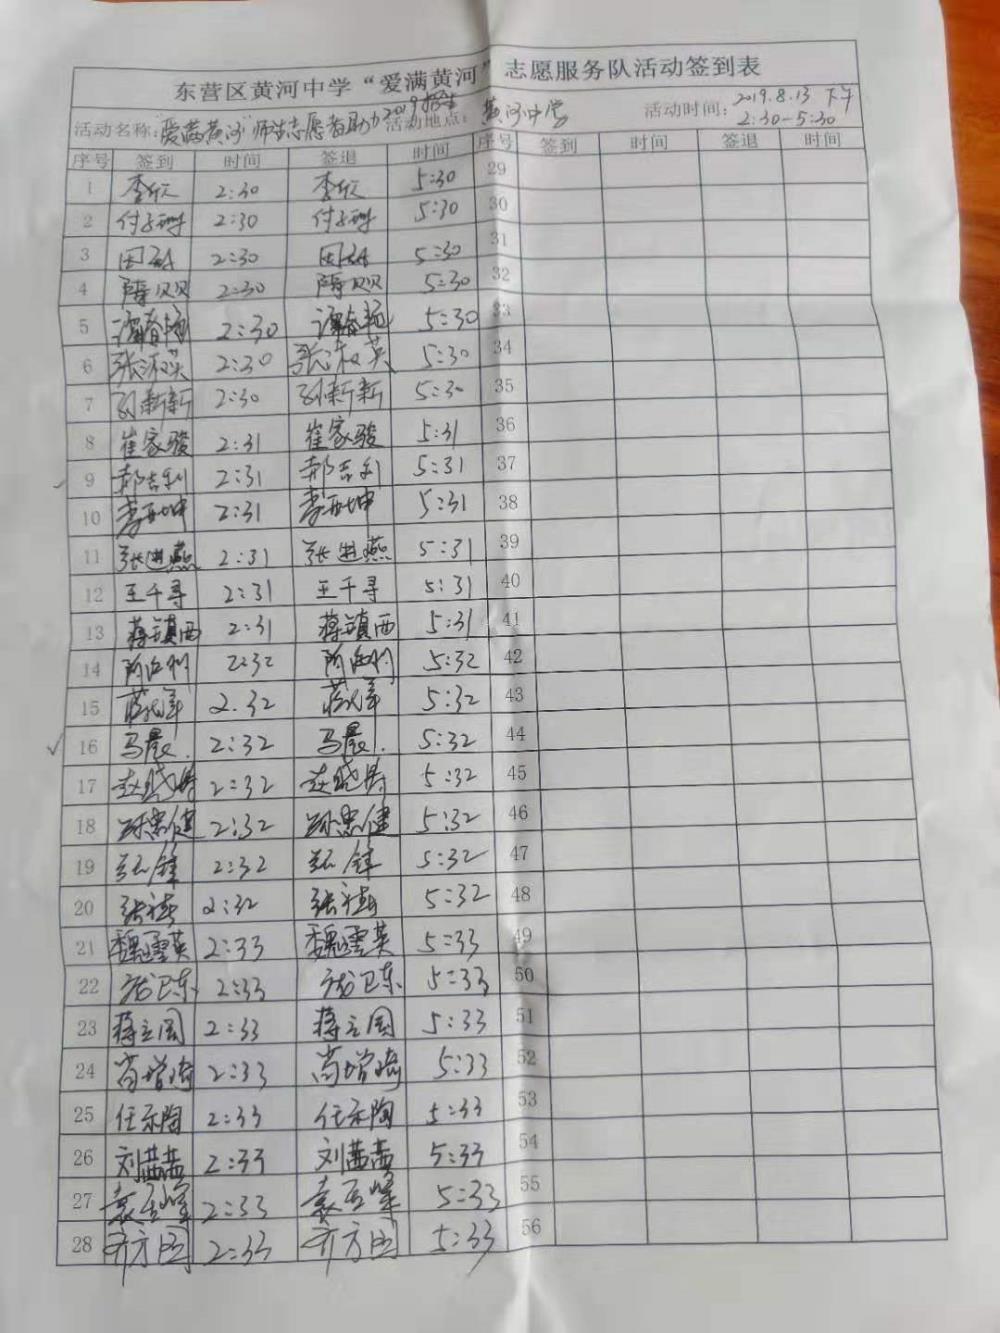 东营区黄河中学“爱满黄河”志愿服务队活动签到表
活动名称:“爱满黄河”师生志愿者助力2019招生 活动地点:黄河中学 活动时间:2019.8.13 下午 2:30-5:30
序号 签到 时间 签退 时间 序号 签到 时间 签退 时间
1 李欣 2:30 李欣 5:30 29
2 付子珊 2:30 付子珊 5:30 30
3 2:30 5:30 31
4 隋贝贝 2:30 隋贝贝 5:30 32
5 2:30 5:30 33
6 张淑英 2:30 张淑英 5:30 34
7 孙新新 2:30 孙新新 5:30 35
8 崔家骏 2:31 崔家骏 5:31 36
9 郝吉利 2:31 郝吉利 5:31 37
10 李亚坤 2:31 李亚坤 5:31 38
11 张进燕 2:31 张进燕 5:31 39
12 王千寻 2:31 王千寻 5:31 40
13 蒋镇西 2:31 蒋镇西 5:31 41
14 2:32 5:32 42
15 2:32 5:32 43
16 马晨 2:32 马晨 5:32 44
17 赵晓 2:32 赵晓 5:32 45
18 忠健 2:32 忠健 5:32 46
19 2:32 5:32 47
20 张 2:32 张 5:32 48
21 魏雪英 2:33 魏雪英 5:33 49
22 卫东 2:33 卫东 5:33 50
23 蒋立国 2:33 蒋立国 5:33 51
24 尚增 2:33 尚增 5:33 52
25 任乐陶 2:33 任乐陶 5:33 53
26 刘茜茜 2:33 刘茜茜 5:33 54
27 袁 峰 2:33 袁 峰 5:33 55
28 齐方 2:33 齐方 5:33 56